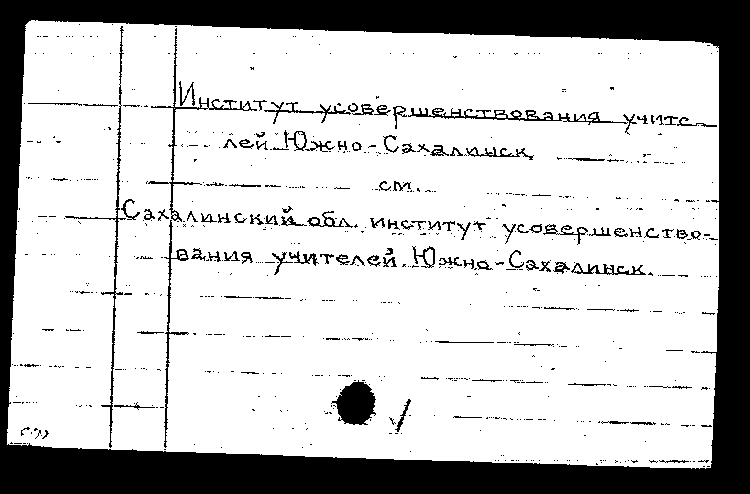 Институт усовершенствования учите-
лей Южно-Сахалинск.
см.
Сахалинский обл. институт усовершенство-
вания учителей. Южно-Сахалинск.